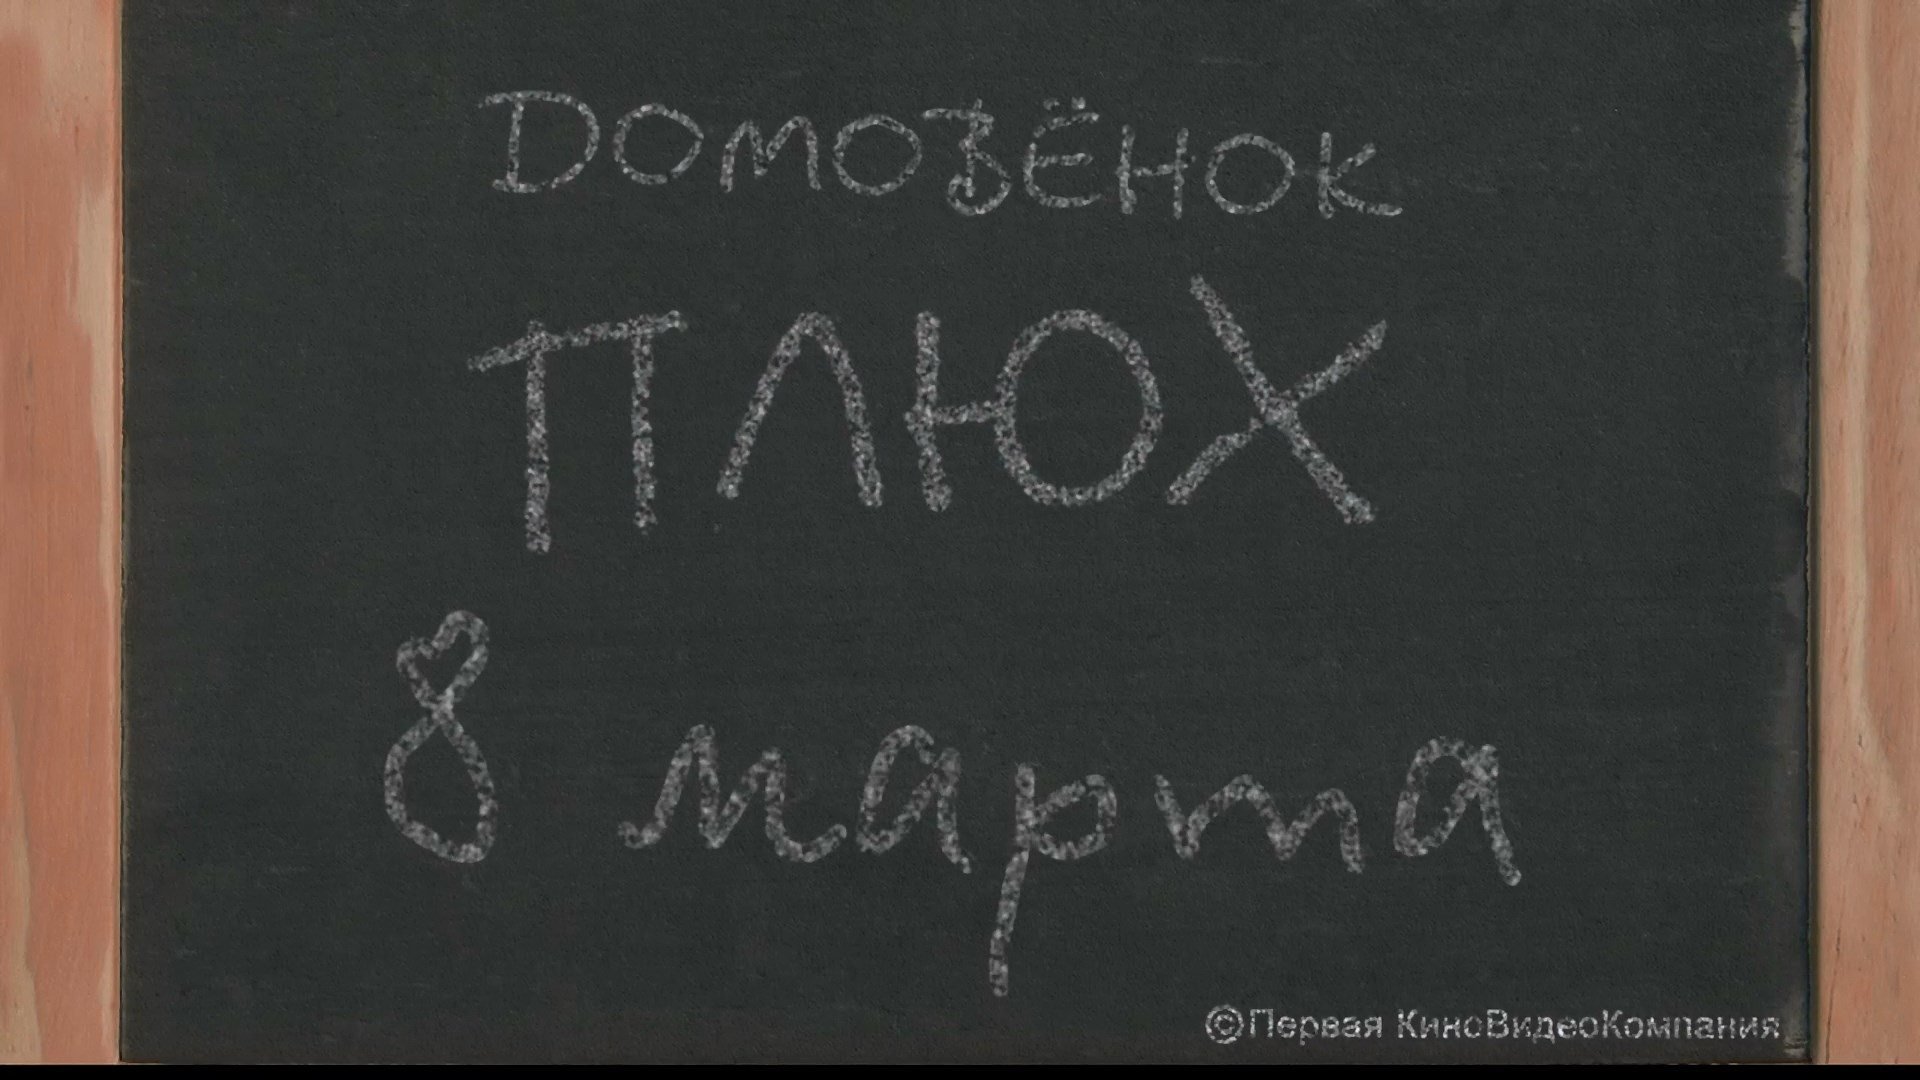 ДОМОВЁНОК
ПЛЮХ
8 марта
©Первая КиноВидеоКомпания